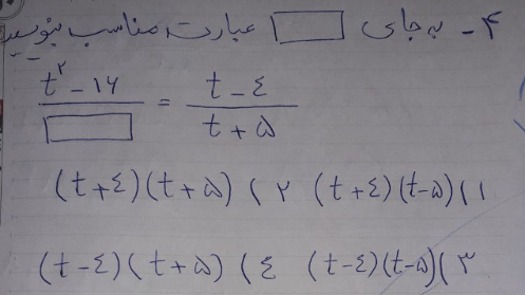 ۴- به جای □ عبارت مناسب بنویسید
t² - ۱۶ / □ = t - ٤ / t + ۵
۱) (t+٤)(t-۵) ۲) (t+٤)(t+۵)
۳) (t-٤)(t-۵) ٤) (t-٤)(t+۵)